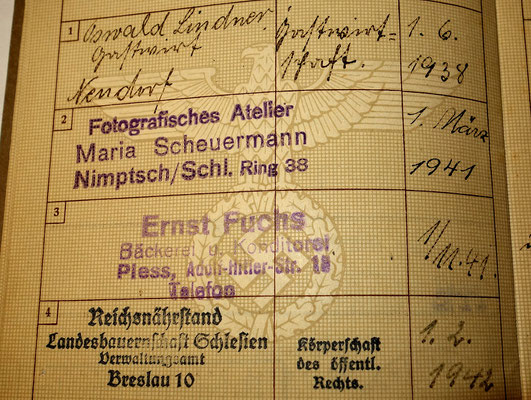 1 Oswald Lindner. Gastwirt= 1. 6.
Gastwirt schaft. 1938
Neudorf
2 Fotografisches Atelier 1. März
Maria Scheuermann 1941
Nimptsch/Schl. Ring 38
3 Ernst Fuchs 1/11.41.
Bäckerei u. Konditorei
Pless, Adolf-Hitler-Str. 18
Telefon
4 Reichsnährstand 1. 2.
Landesbauernschaft Schlesien Körperschaft 1942
Verwaltungsamt des öffentl.
Breslau 10 Rechts.